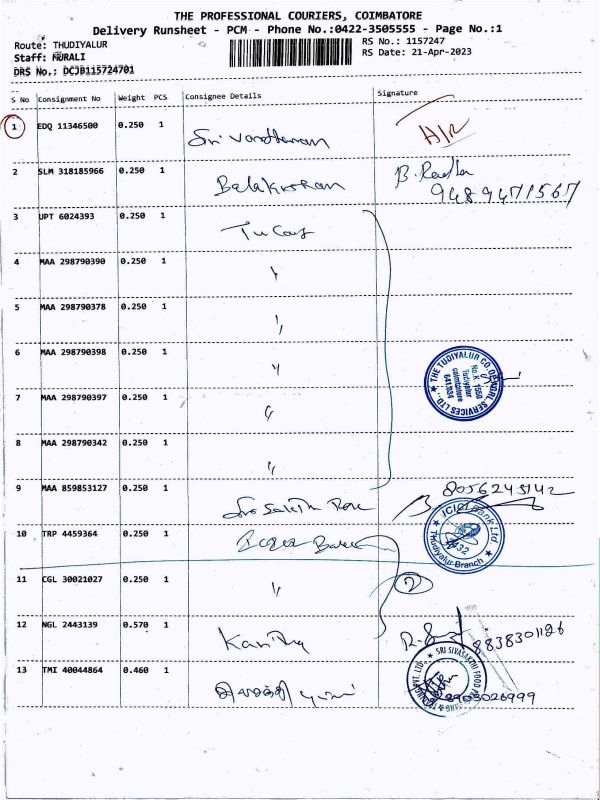 THE PROFESSIONAL COURIERS, COIMBATORE
Delivery Runsheet - PCM - Phone No.:0422-3505555 - Page No.:1
Route: THUDIYALUR
RS No.: 1157247
Staff: MURALI
RS Date: 21-Apr-2023
DRS No.: DCJB115724701
S No Consignment No Weight PCS Consignee Details Signature
1 EDQ 11346500 0.250 1 Sri Vardhanan
2 SLM 318185966 0.250 1 Balakrishnan B. Radha
9489471567
3 UPT 6024393 0.250 1 Tucas
4 MAA 298790390 0.250 1 "
5 MAA 298790378 0.250 1 "
6 MAA 298790398 0.250 1 "
THE TUDIYALUR CO.OP. AGRL. SERVICES LTD.,
No.K. 1550
Tudiyalur
coimbatore
641034
7 MAA 298790397 0.250 1 "
8 MAA 298790342 0.250 1 "
9 MAA 859853127 0.250 1 8056245142
10 TRP 4459364 0.250 1
ICICI Bank Ltd.
Thudiyalur Branch
11 CGL 30021027 0.250 1 " 2
12 NGL 2443139 0.570 1 Kavitha 8838301126
13 TMI 40044864 0.460 1
SRI SIVASAKTHI FOOD
8903026999